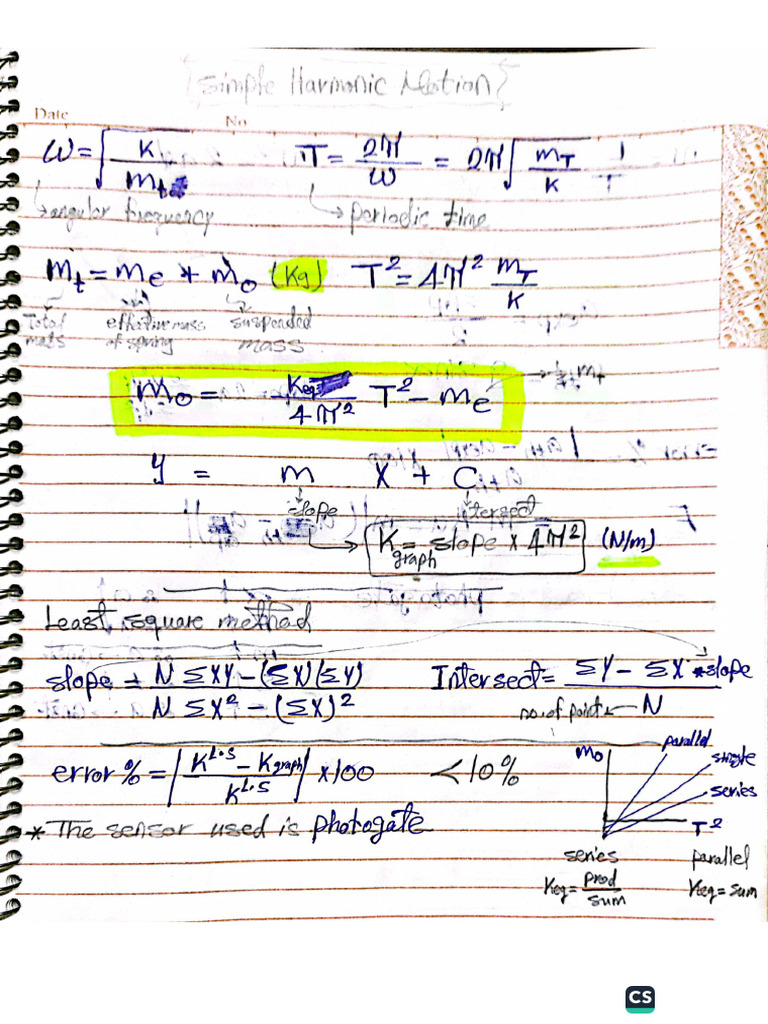 Simple Harmonic Motion
Date No
ω = √(K / m_t) T = 2π / ω = 2π √(m_T / K)
angular frequency periodic time
m_t = m_e + m_o (Kg) T² = 4π² m_T / K
Total mass effective mass of spring suspended mass
m_o = K_eq / 4π² T² - m_e
y = m x + C
slope intersect
K_graph = slope × 4π² (N/m)
Least square method
slope = (N ΣXY - (ΣX)(ΣY)) / (N ΣX² - (ΣX)²) Intersect = (ΣY - ΣX * slope) / N
no. of point N
error % = |(K^L.S - K_graph) / K^L.S| × 100 < 10%
m_o parallel single series T²
* The sensor used is photogate
series parallel
K_eq = prod / sum K_eq = sum
CS